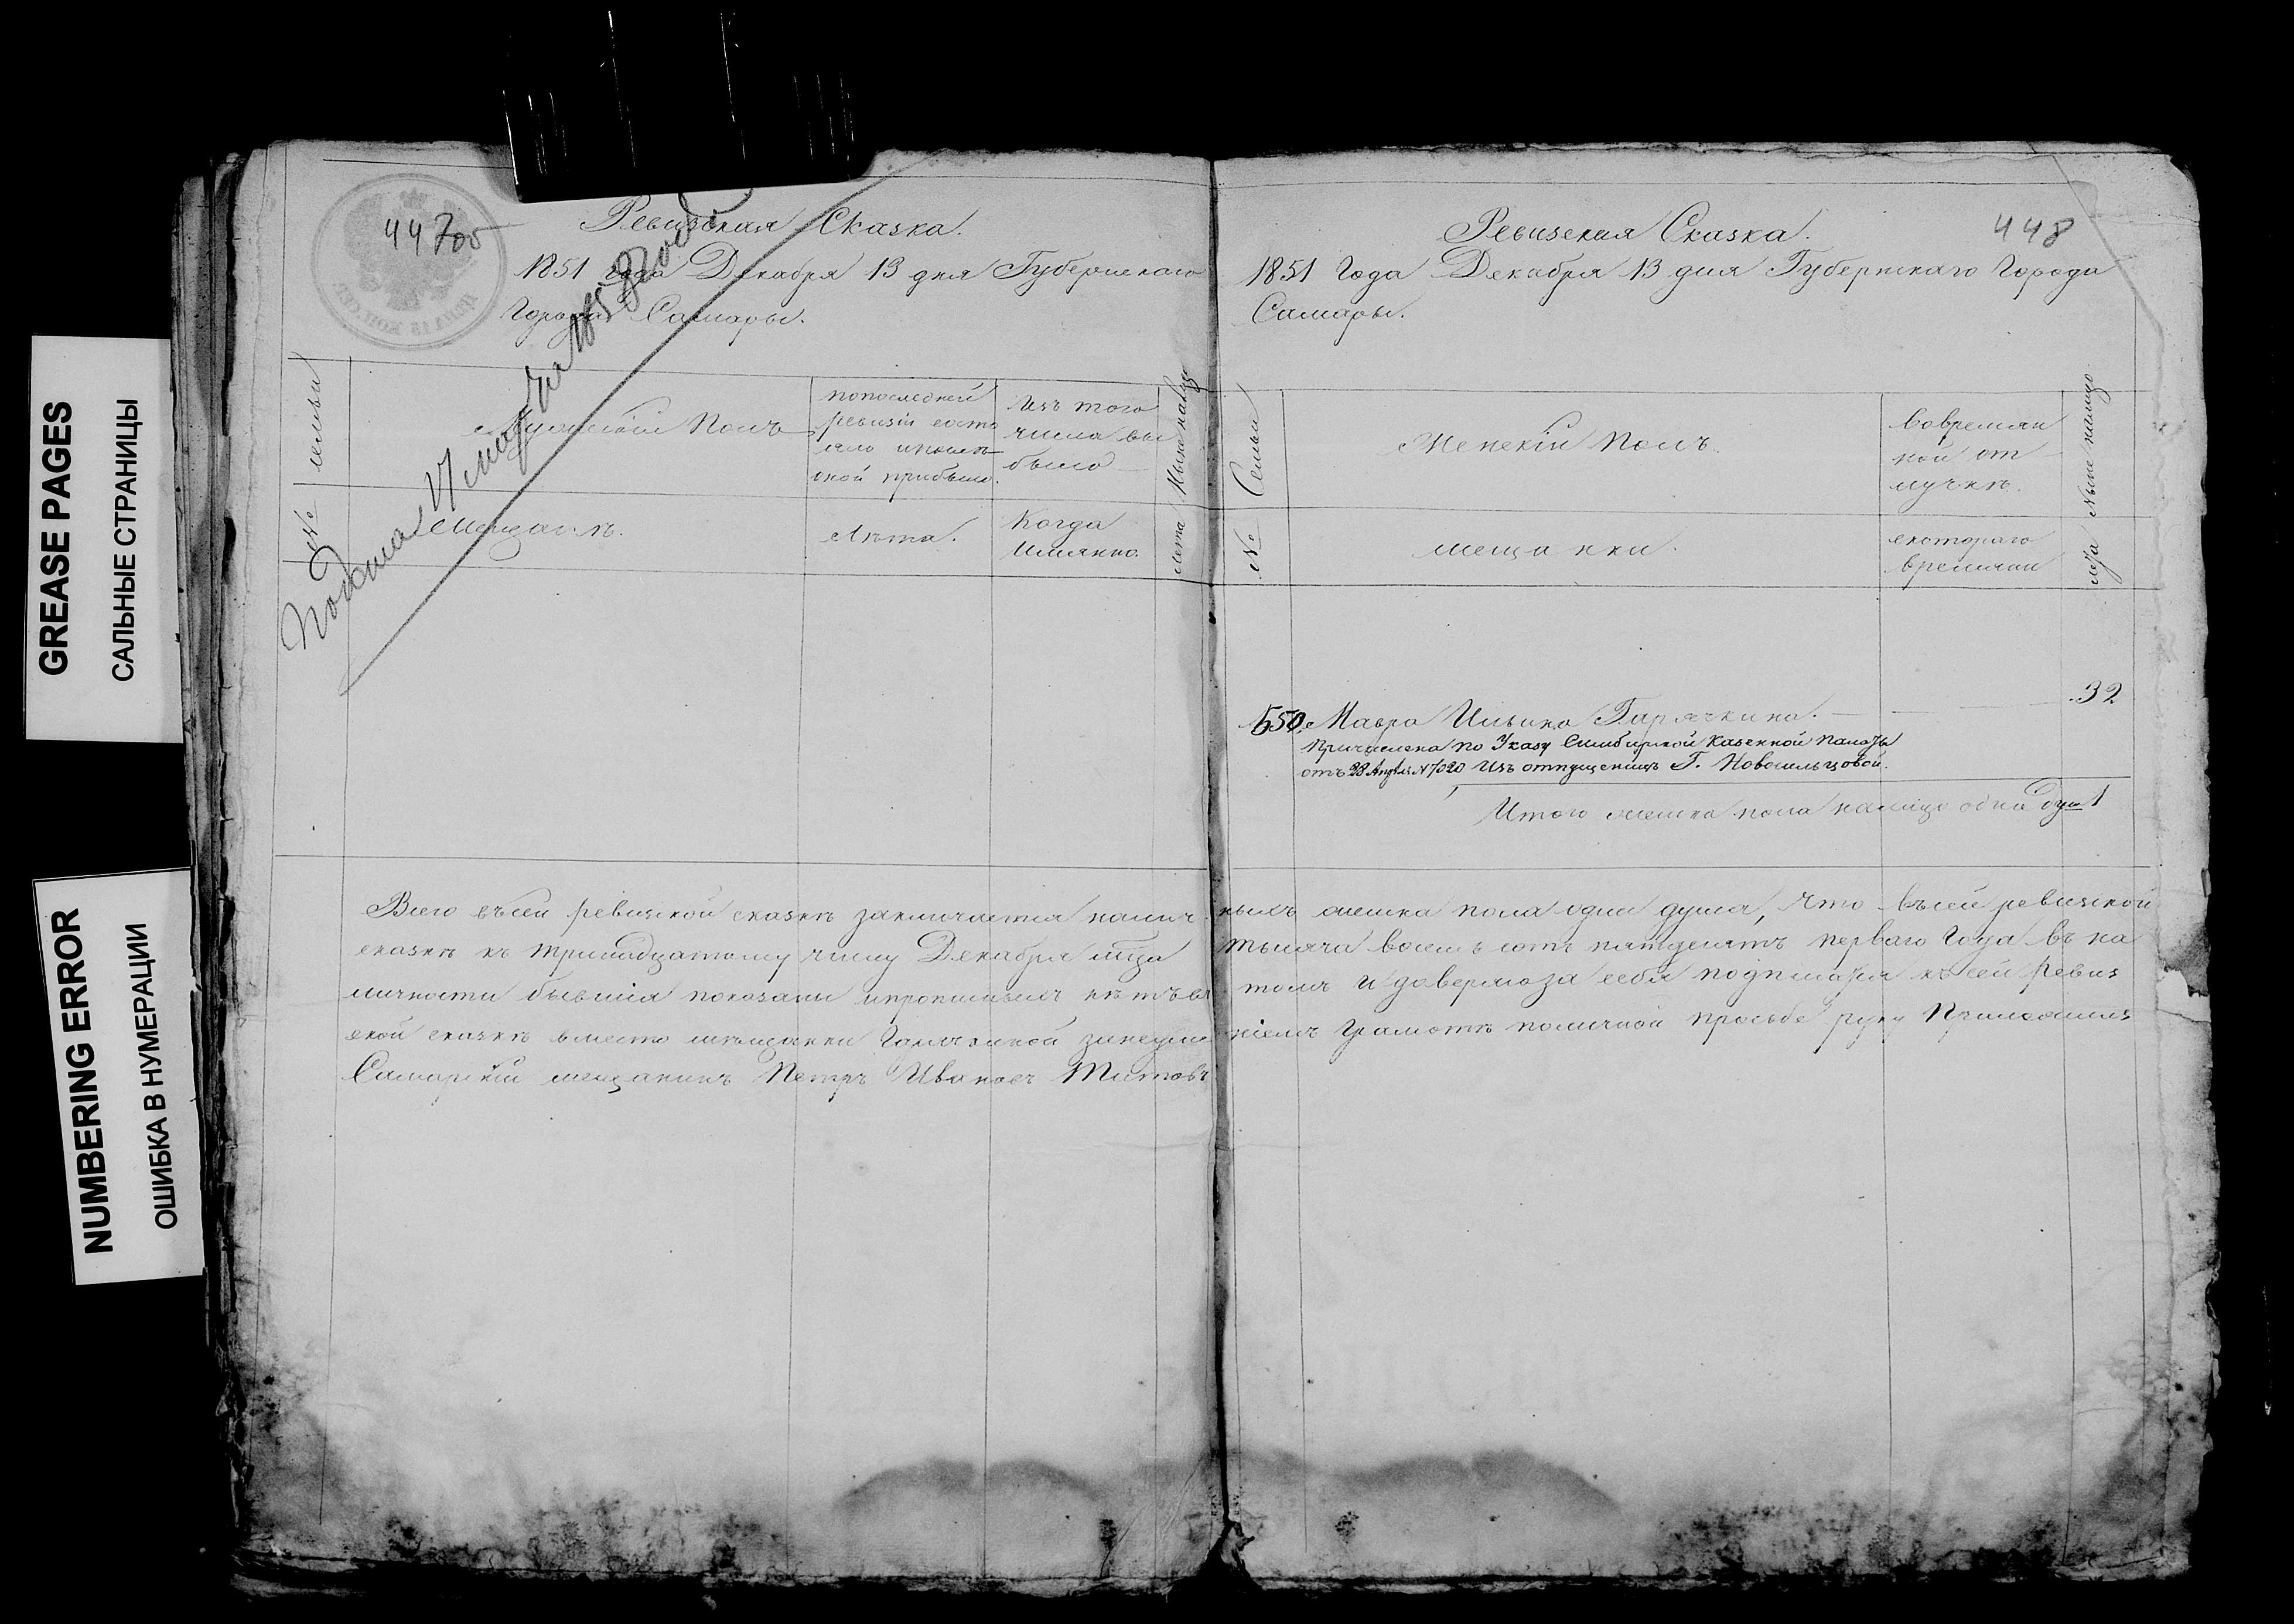 GREASE PAGES
САЛЬНЫЕ СТРАНИЦЫ
NUMBERING ERROR
ОШИБКА В НУМЕРАЦИИ
Ревизская Сказка.
1851 года Декабря 13 дня Губернскаго
Города Самары.
Подана 17 марта
№ семьи
Мужеский Полъ
попоследней
ревизiи состо
яло и после
оной прибыло.
Изъ того
числа вы
было
Лета Ныне налицо
Мещане.
Лѣта.
Когда
Имянно.
448
Ревизская Сказка.
1851 Года Декабря 13 дня Губернскаго Города
Самары.
№ Семьи
Женскiй Полъ.
вовремян
ной от
лучкѣ.
Лета Ныне налицо
мещанки.
скотораго
времяни
550. Мавра Ильина Горячкина. 32
Причислена по Указу Симбирской Казенной Палаты
отъ 28 Апреля N 7020 Изъ отпущеницъ Г. Новосильцовой.
Итого женска пола налицо одна душ 1
Всего въсей ревизской сказкѣ заключается налич ныхъ женска пола одна душа, Что въсей ревизской
сказкѣ къ тринадцатому числу Декабря мца тысяча восемь сотъ пятдесятъ перваго Года въ на
личности бывшiя показаны и прописныхъ нѣтъ в томъ и доверяю за себя подписатся ксей Ревиз
ской сказкѣ вместо мѣщанки Горячкиной занеуме нiемъ Грамотѣ поличной просьбе руку Приложилъ
Самарскiй мещанинъ Петръ Ивановъ Титовъ